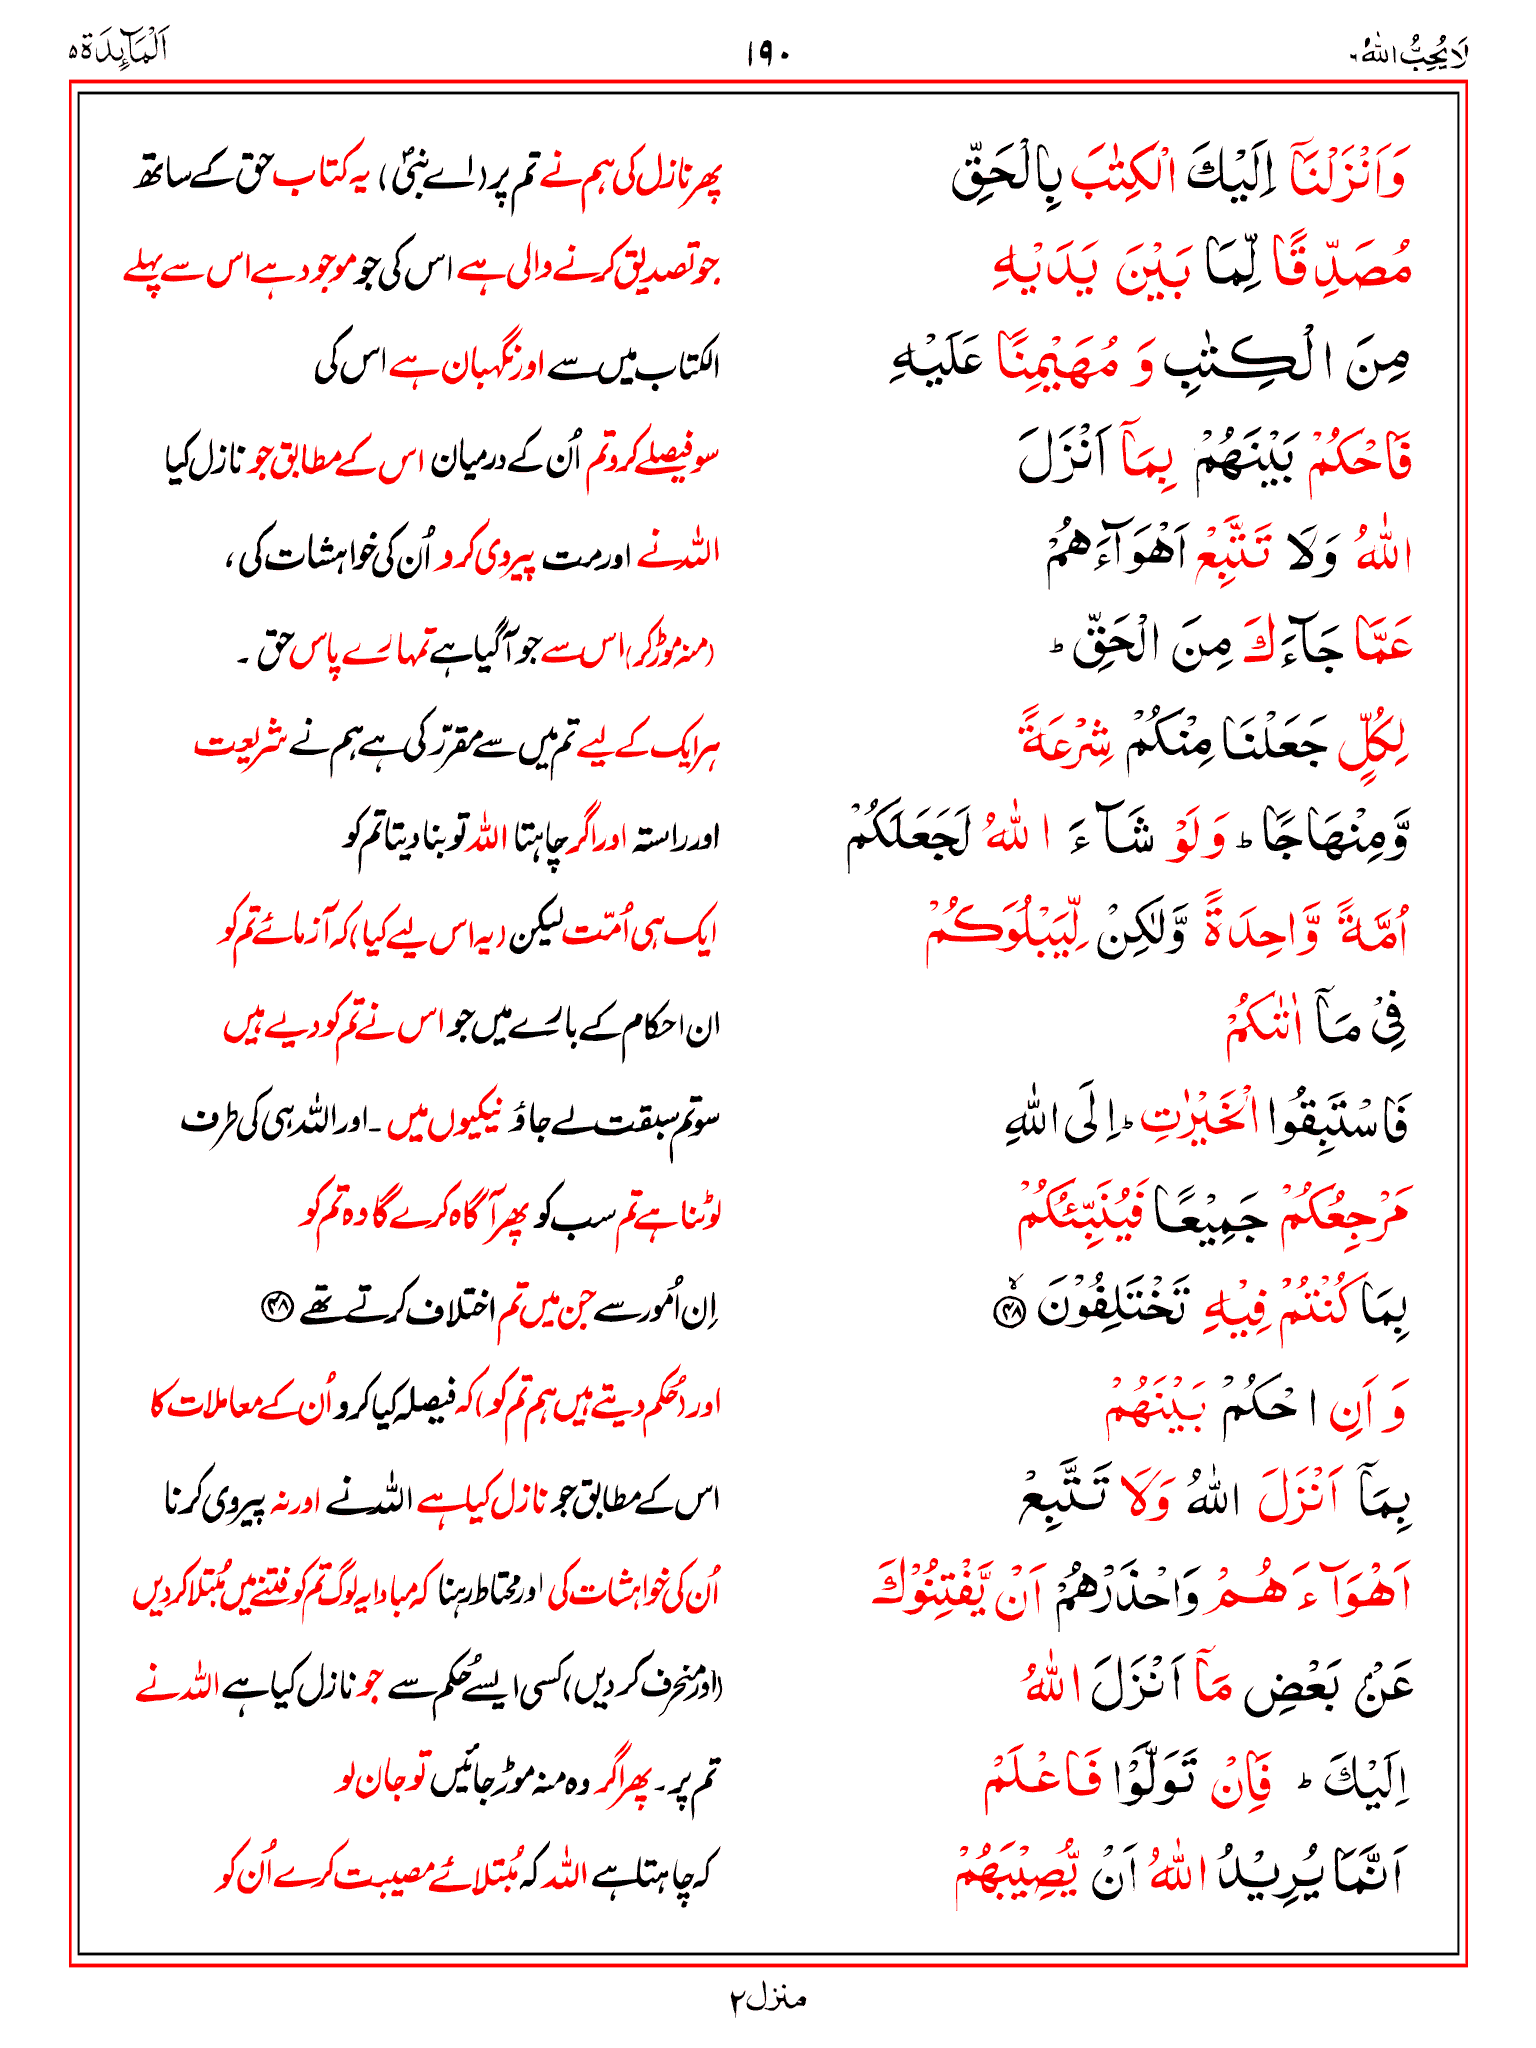 لَا يُحِبُّ اللّٰهُ ۶ ۱۹۰ اَلْمَآئِدَة ۵
وَاَنْزَلْنَاۤ اِلَيْكَ الْكِتٰبَ بِالْحَقِّ پھر نازل کی ہم نے تم پر (اے نبیؐ) یہ کتاب حق کے ساتھ
مُصَدِّقًا لِّمَا بَيْنَ يَدَيْهِ جو تصدیق کرنے والی ہے اس کی جو موجود ہے اس سے پہلے
مِنَ الْكِتٰبِ وَ مُهَيْمِنًا عَلَيْهِ الکتاب میں سے اور نگہبان ہے اس کی
فَاحْكُمْ بَيْنَهُمْ بِمَاۤ اَنْزَلَ سو فیصلے کرو تم اُن کے درمیان اس کے مطابق جو نازل کیا
اللّٰهُ وَلَا تَتَّبِعْ اَهْوَآءَهُمْ اللہ نے اور مت پیروی کرو اُن کی خواہشات کی،
عَمَّا جَآءَكَ مِنَ الْحَقِّ ؕ (منہ موڑ کر) اس سے جو آ گیا ہے تمہارے پاس حق ۔
لِكُلٍّ جَعَلْنَا مِنْكُمْ شِرْعَةً ہر ایک کے لیے تم میں سے مقرّر کی ہے ہم نے شریعت
وَّمِنْهَاجًا ؕ وَلَوْ شَآءَ اللّٰهُ لَجَعَلَكُمْ اور راستہ اور اگر چاہتا اللہ تو بنا دیتا تم کو
اُمَّةً وَّاحِدَةً وَّلٰكِنْ لِّيَبْلُوَكُمْ ایک ہی اُمّت لیکن (یہ اس لیے کیا) کہ آزمائے تم کو
فِيْ مَاۤ اٰتٰىكُمْ ان احکام کے بارے میں جو اس نے تم کو دیے ہیں
فَاسْتَبِقُوا الْخَيْرٰتِ ؕ اِلَى اللّٰهِ سو تم سبقت لے جاؤ نیکیوں میں ۔ اور اللہ ہی کی طرف
مَرْجِعُكُمْ جَمِيْعًا فَيُنَبِّئُكُمْ لوٹنا ہے تم سب کو پھر آگاہ کرے گا وہ تم کو
بِمَا كُنْتُمْ فِيْهِ تَخْتَلِفُوْنَ ۙ ﴿۴۸﴾ اِن اُمور سے جن میں تم اختلاف کرتے تھے ﴿۴۸﴾
وَ اَنِ احْكُمْ بَيْنَهُمْ اور (حُکم دیتے ہیں ہم تم کو) کہ فیصلہ کیا کرو اُن کے معاملات کا
بِمَاۤ اَنْزَلَ اللّٰهُ وَلَا تَتَّبِعْ اس کے مطابق جو نازل کیا ہے اللہ نے اور نہ پیروی کرنا
اَهْوَآءَهُمْ وَاحْذَرْهُمْ اَنْ يَّفْتِنُوْكَ اُن کی خواہشات کی اور محتاط رہنا کہ مبادا یہ لوگ تم کو فتنے میں مُبتلا کردیں
عَنْۢ بَعْضِ مَاۤ اَنْزَلَ اللّٰهُ (اور منحرف کر دیں) کسی ایسے حُکم سے جو نازل کیا ہے اللہ نے
اِلَيْكَ ؕ فَاِنْ تَوَلَّوْا فَاعْلَمْ تم پر ۔ پھر اگر وہ منہ موڑ جائیں تو جان لو
اَنَّمَا يُرِيْدُ اللّٰهُ اَنْ يُّصِيْبَهُمْ کہ چاہتا ہے اللہ کہ مُبتلائے مصیبت کرے اُن کو
منزل ۲